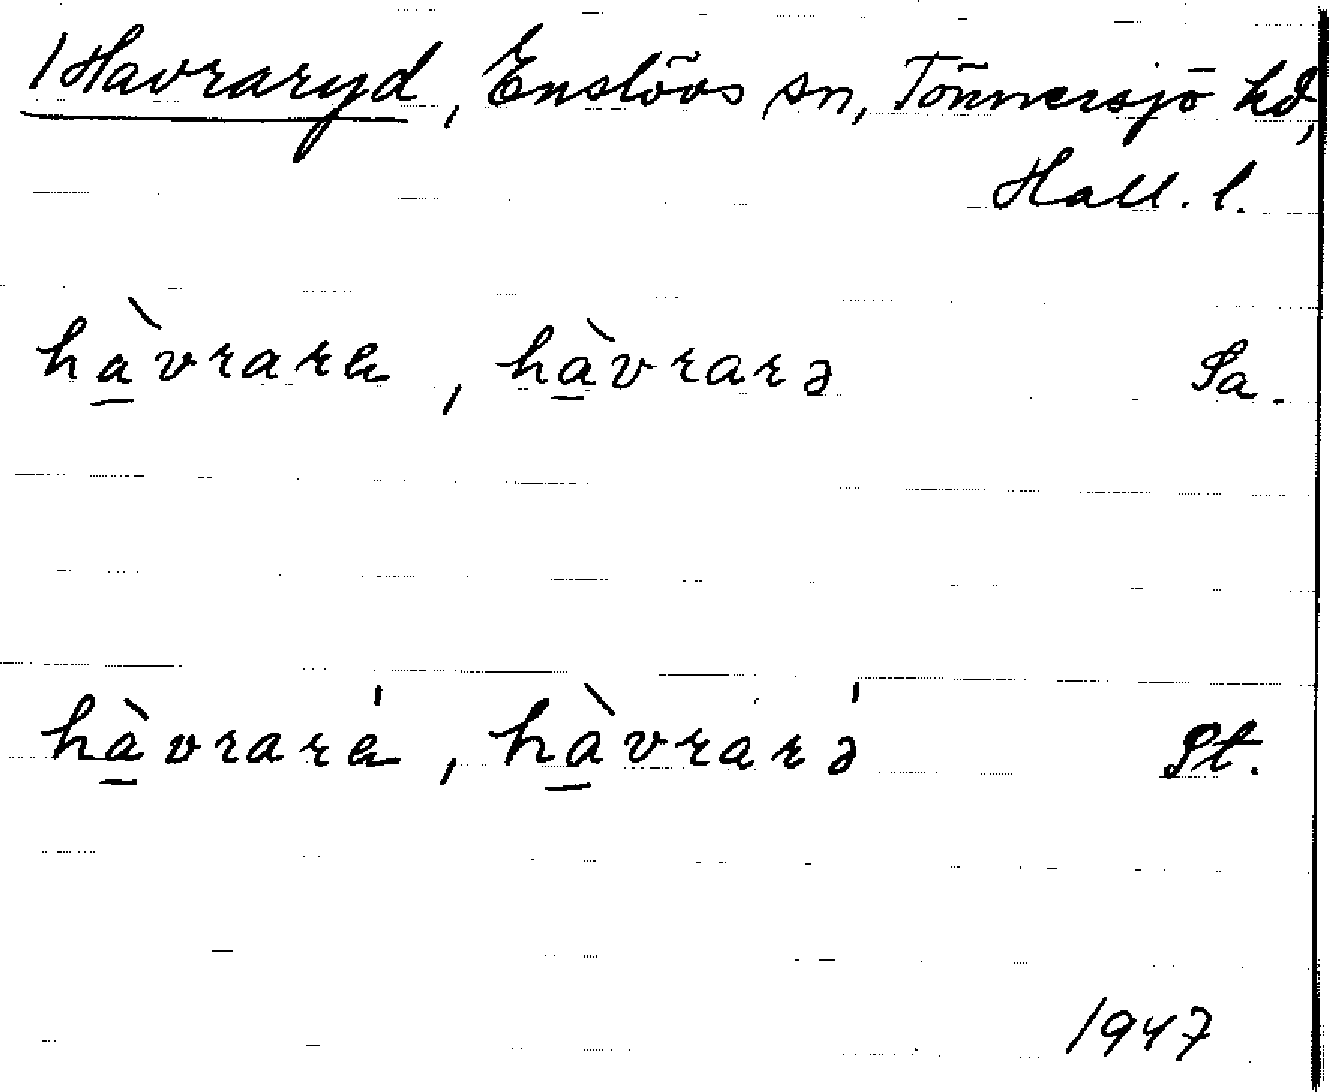 /Havraryd, Enslövs sn, Tönnersjö hd,
Hall. l.
hà̱vrara, hà̱vrarə Sa.
hà̱vrara̍, hà̱vrarə̍ St.
1947